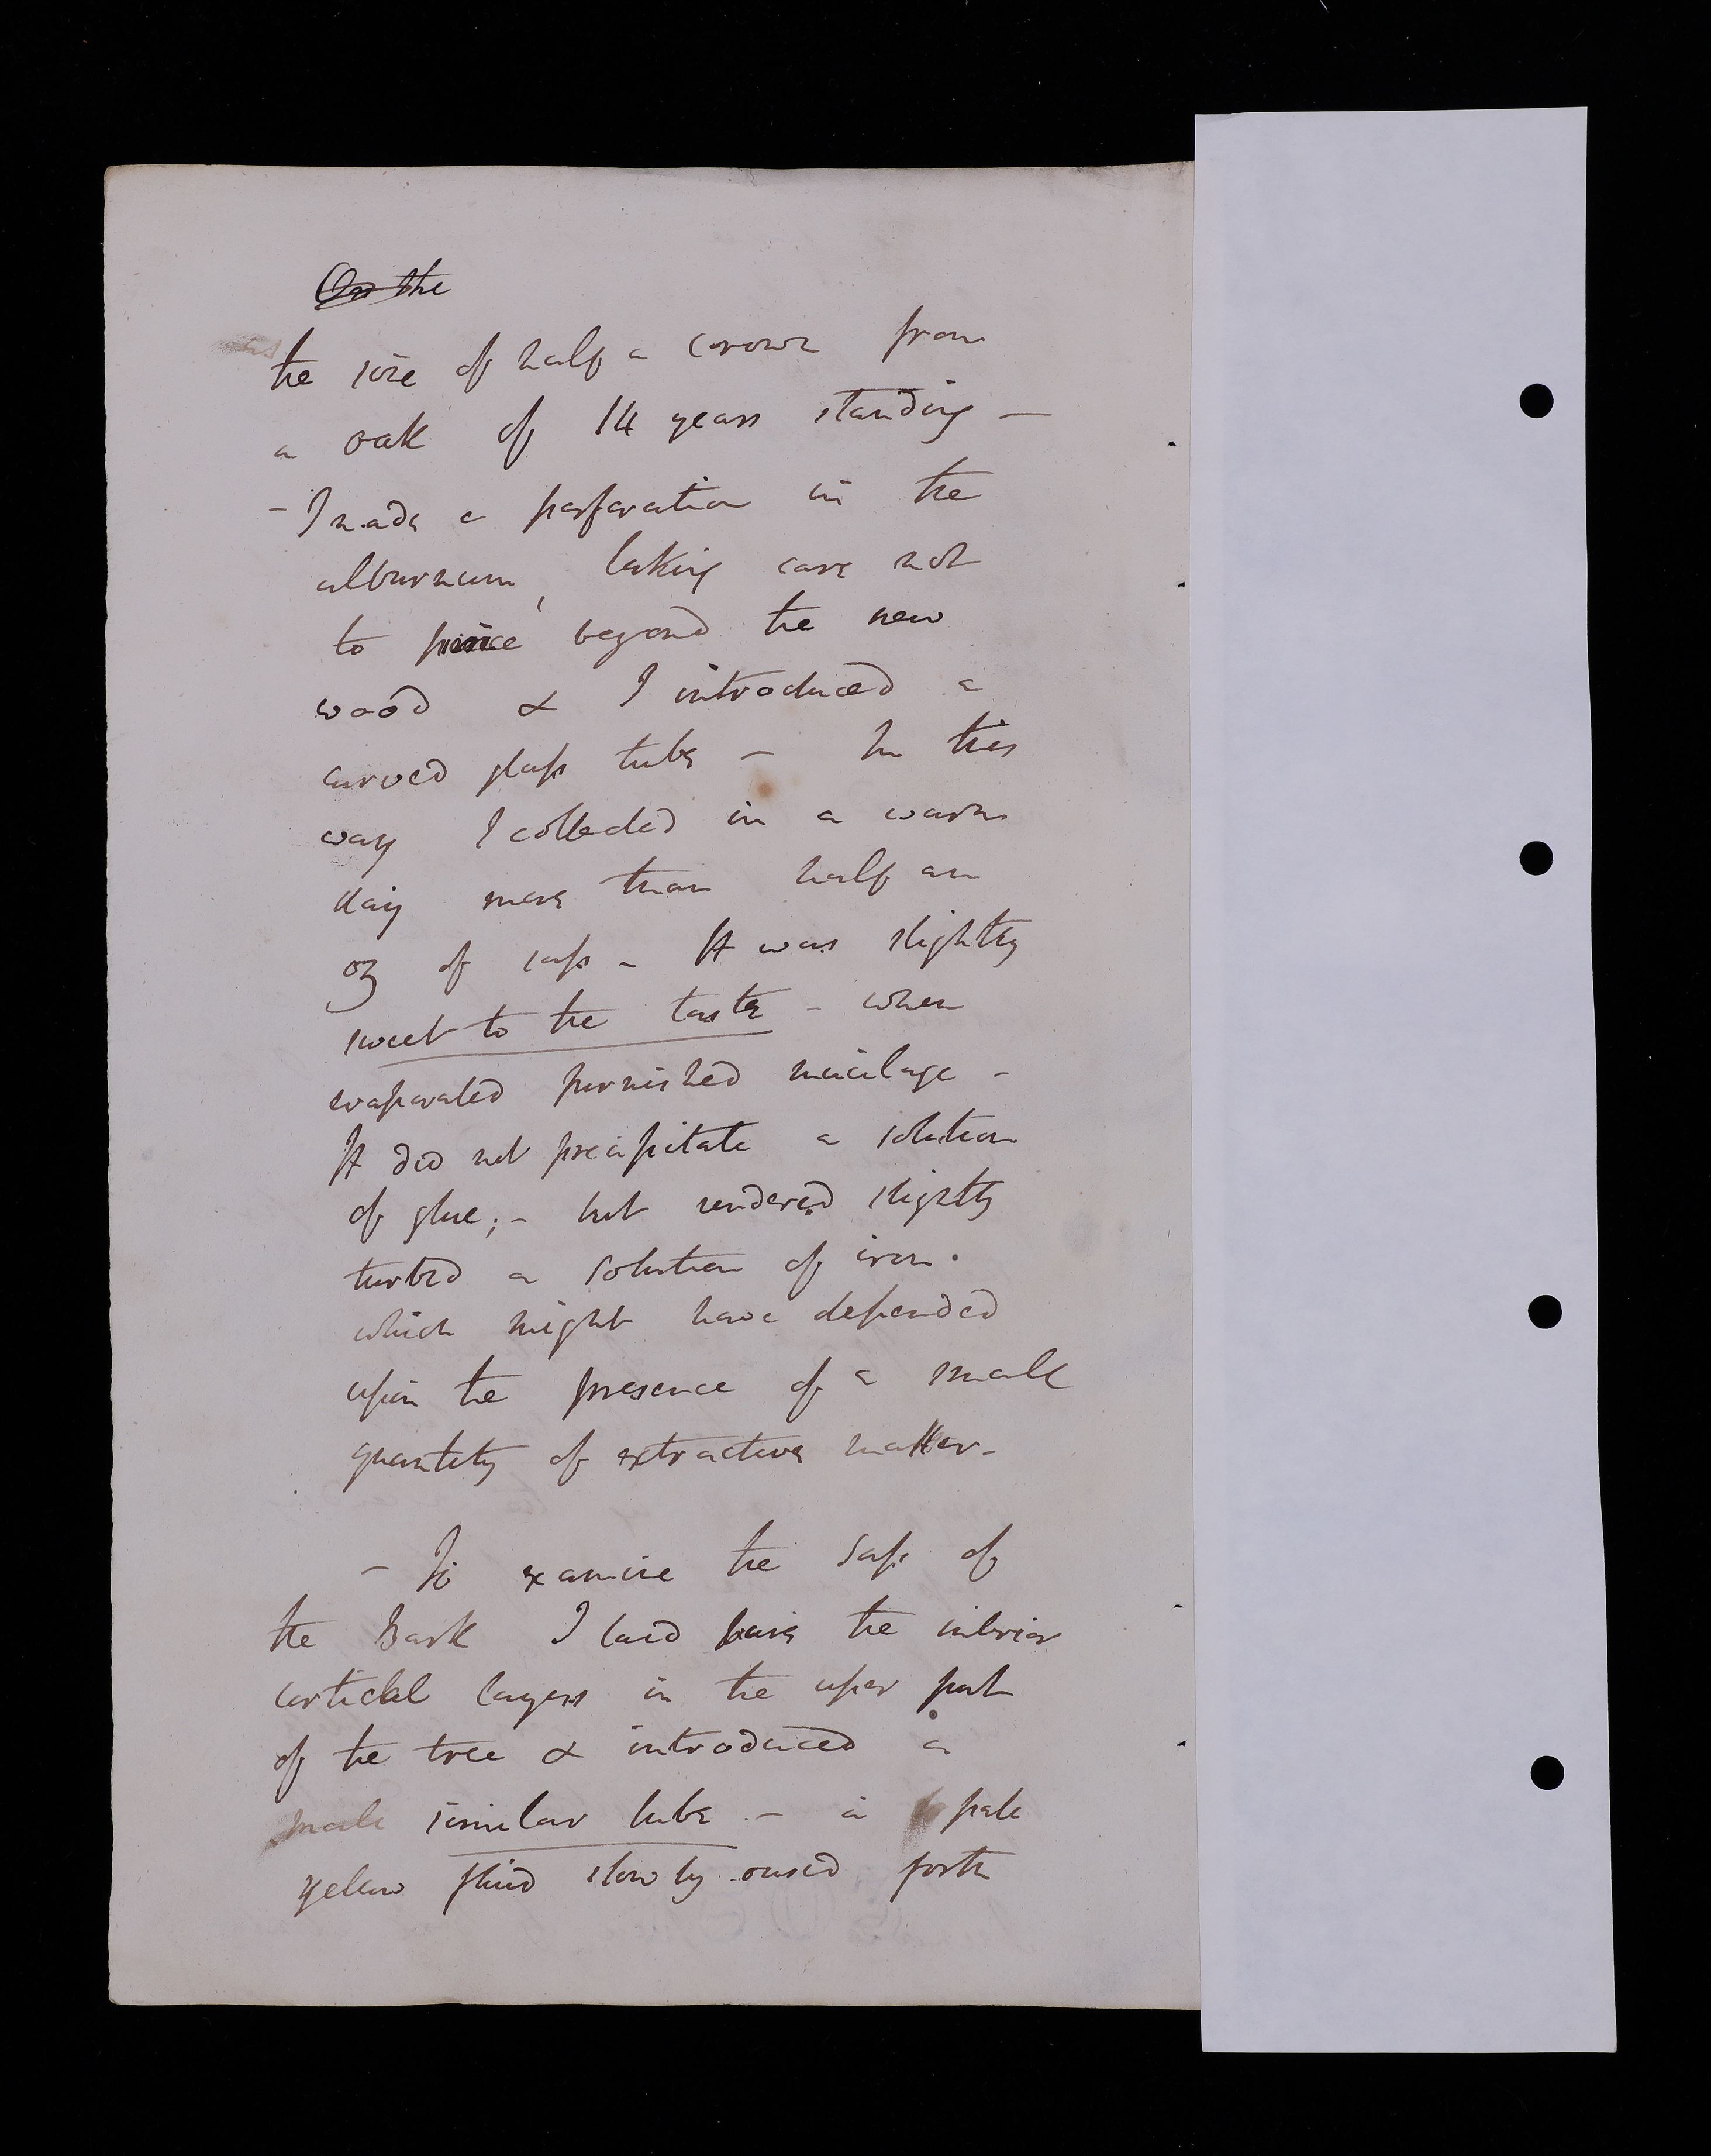 On the
the size of half a crown from
a oak of 14 years standing —
- I made a perforation in the
alburnum, taking care not
to pierce beyond the new
wood & I introduced a
curved glass tube — In this
way I collected in a warm
day more than half an
oz of sap - It was slightly
sweet to the taste - when
evaporated furnished mucilage -
It did not precipitate a solution
of glue; - but rendered slightly
turbid a solution of iron.
which might have depended
upon the presence of a small
quantity of extractive matter -
- To examine the sap of
the Bark I laid bare the interior
cortical layers in the uper part
of the tree & introduced a
similar tube - a pale
yellow fluid slowly oused forth